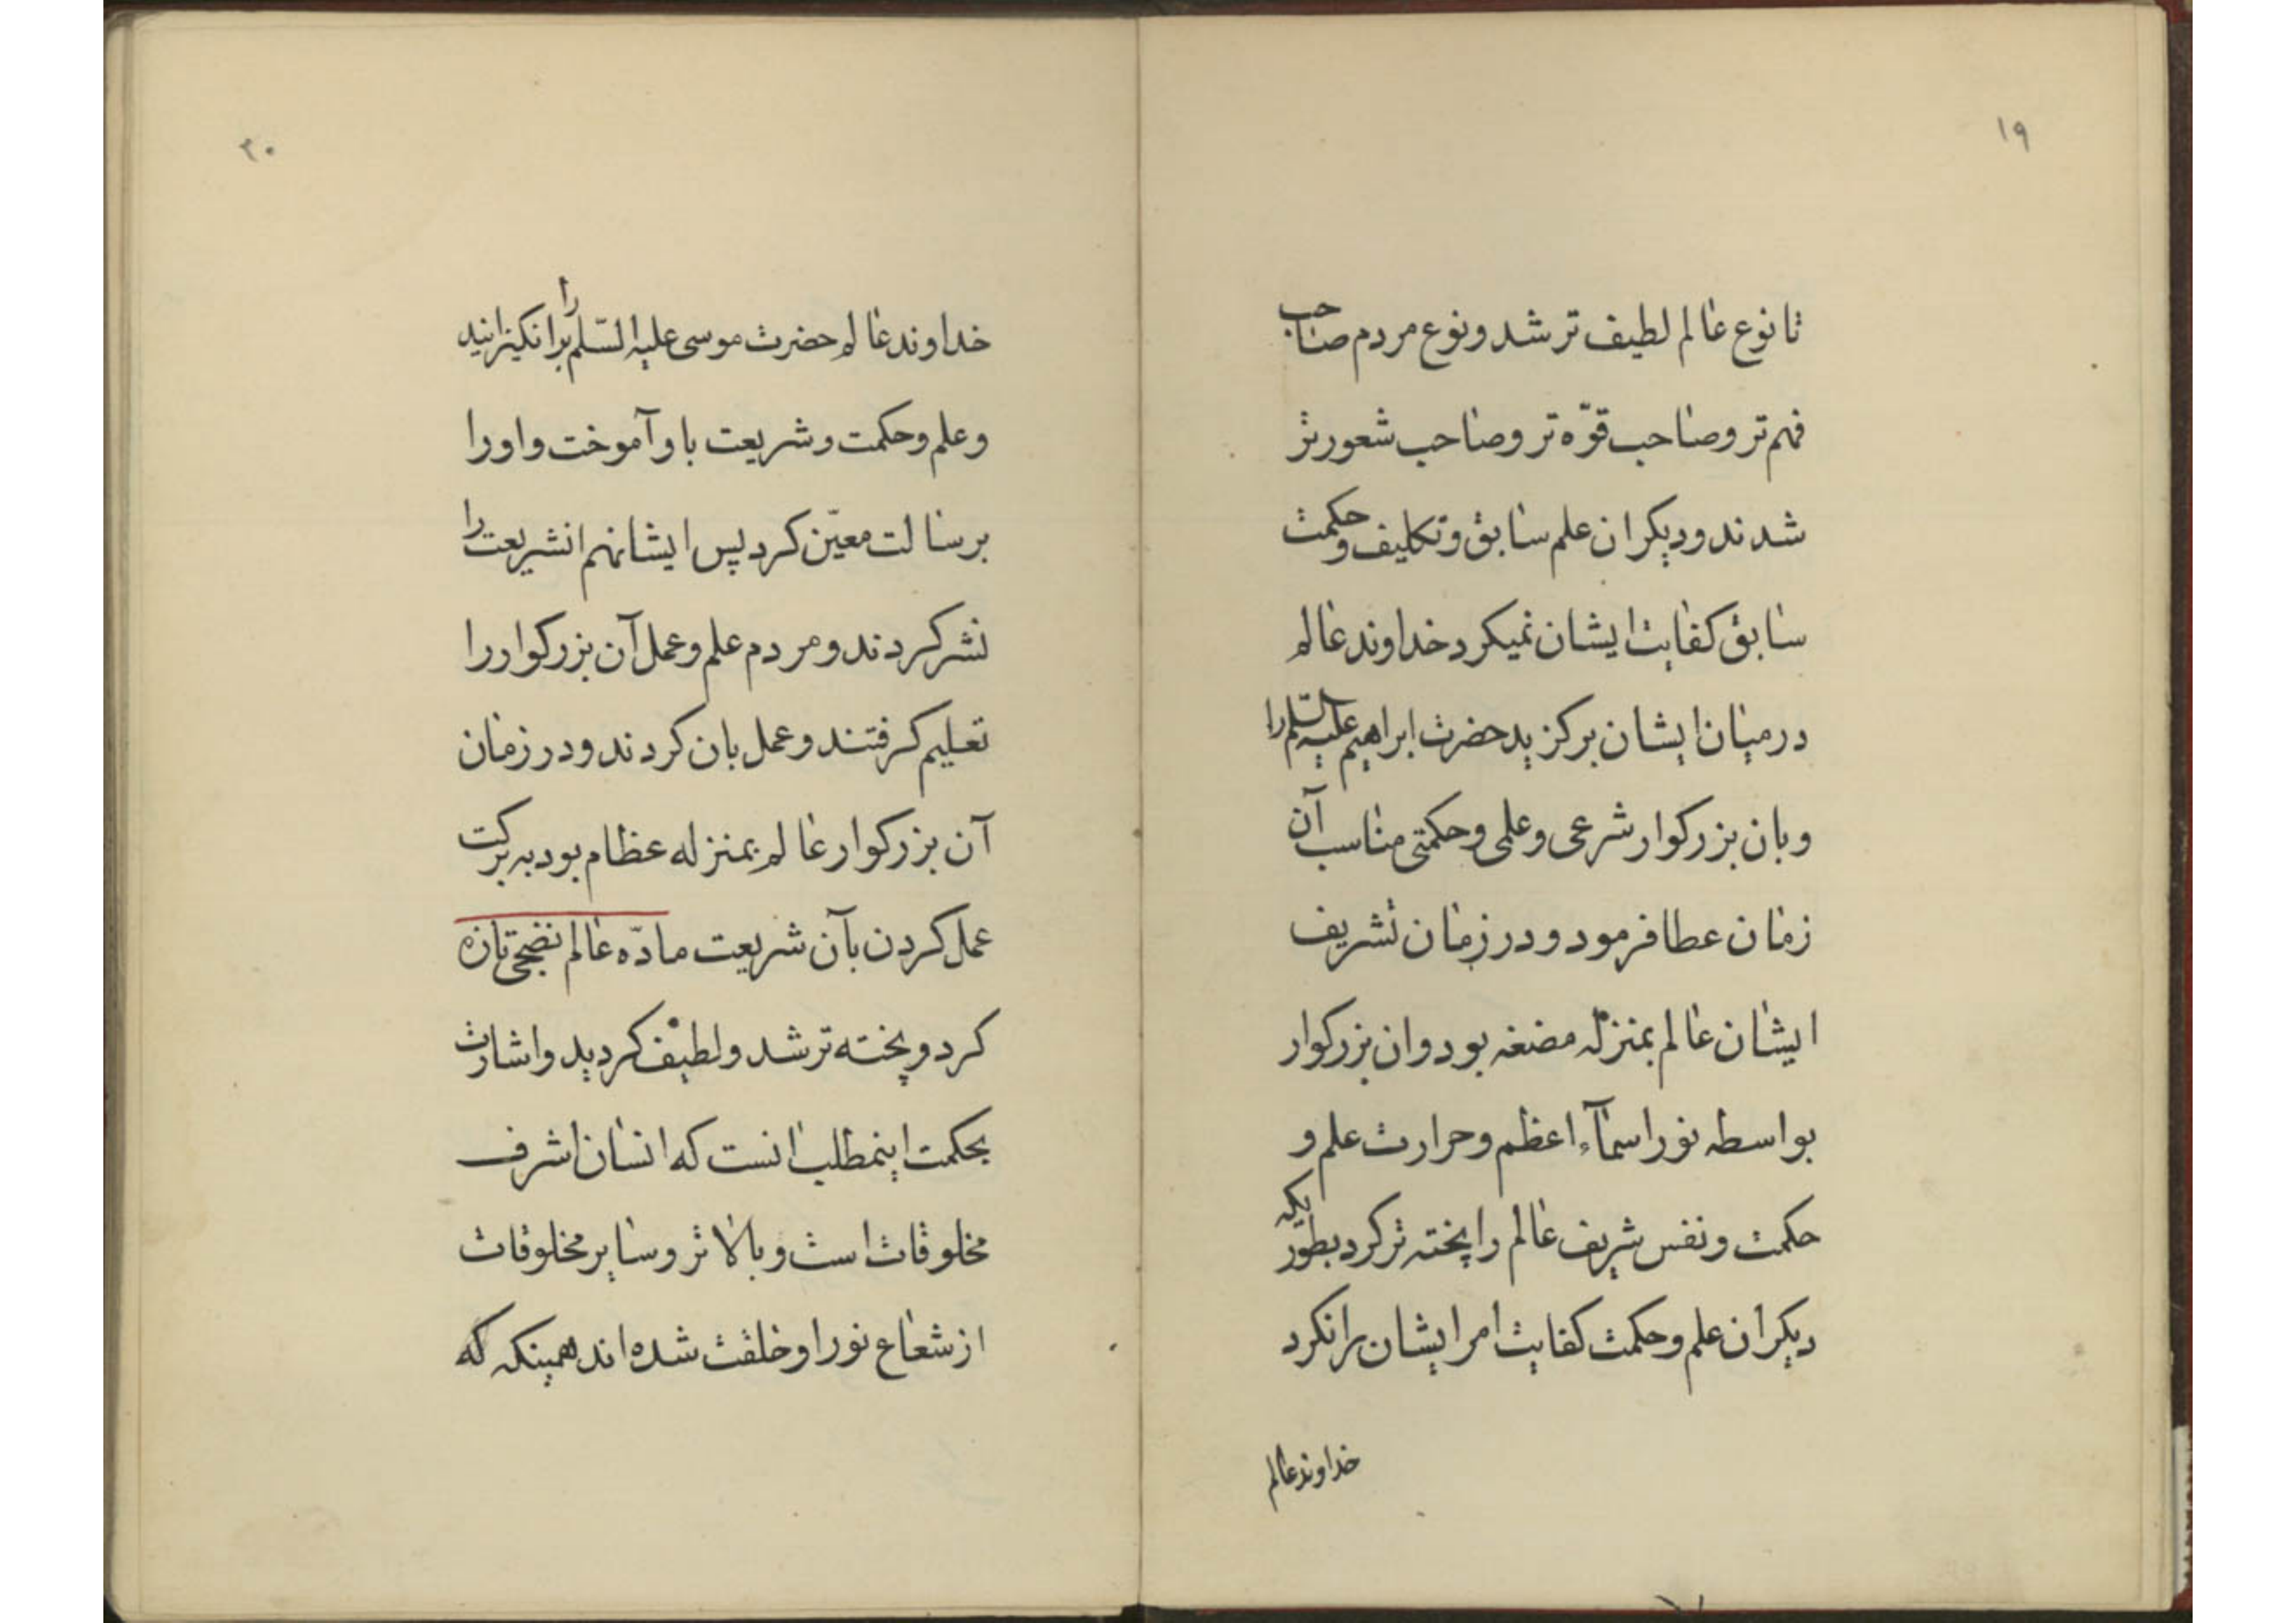 ۱۹
تا نوع عالم لطیف تر شد و نوع مردم صاحب
فهم تر و صاحب قوّه تر و صاحب شعور تر
شدند و دیکر ان علم سابق و تکالیف و حکمت
سابق کفایت ایشان نمیکرد خداوند عالم
در میان ایشان برکزید حضرت ابراهیم علیه السّلم را
و بان بزرکوار شرعی و علمی و حکمتی مناسب آن
زمان عطا فرمود و در زمان تشریف
ایشان عالم بمنزله مضغه بود و ان بزرکوار
بواسطه نور اسمآء اعظم و حرارت علم و
حکمت و نفس شریف عالم را پخته تر کرد بطوریکه
دیکر ان علم و حکمت کفایت امر ایشان را نکرد
خداوند عالم
۲۰
خداوند عالم حضرت موسی علیه السّلم را برانکیزانید
و علم و حکمت و شریعت باو آموخت و او را
برسالت معیّن کرد پس ایشانهم انشریعت را
نشر کردند و مردم علم و عمل آن بزرکوار را
تعلیم کرفتند و عمل بان کردند و در زمان
آن بزرکوار عالم بمنزله عظام بود به برکت
عمل کردن بآن شریعت مادّه عالم نضجی تازه
کرد و پخته تر شد و لطیف کردید و اشارت
بحکمت اینمطلب انست که انسان اشرف
مخلوقات است و بالاتر و سایر مخلوقات
از شعاع نور او خلقت شده اند همینکه که